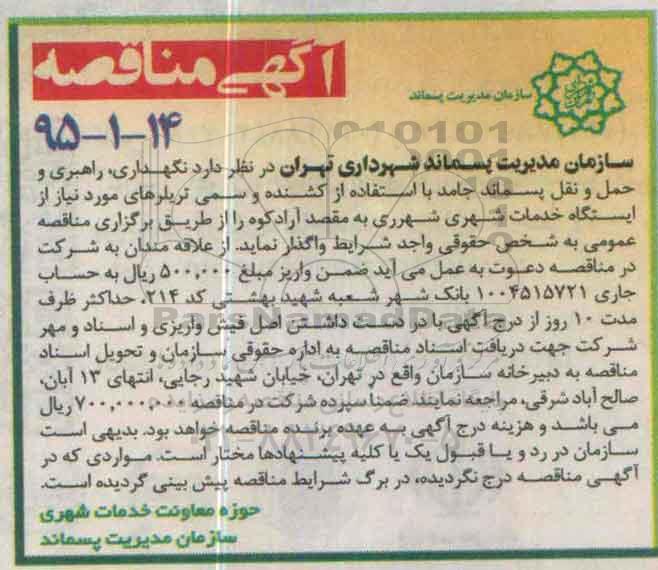 آگهی مناقصه
سازمان مدیریت پسماند
۹۵-۱-۱۴
سازمان مدیریت پسماند شهرداری تهران در نظر دارد نگهداری، راهبری و
حمل و نقل پسماند جامد با استفاده از کشنده و سمی تریلرهای مورد نیاز از
ایستگاه خدمات شهری شهرری به مقصد آرادکوه را از طریق برگزاری مناقصه
عمومی به شخص حقوقی واجد شرایط واگذار نماید. از علاقه مندان به شرکت
در مناقصه دعوت به عمل می آید ضمن واریز مبلغ ۵۰۰,۰۰۰ ریال به حساب
جاری ۱۰۰۴۵۱۵۷۲۱ بانک شهر شعبه شهید بهشتی کد ۲۱۴، حداکثر ظرف
مدت ۱۰ روز از درج آگهی با در دست داشتن اصل فیش واریزی و اسناد و مهر
شرکت جهت دریافت اسناد مناقصه به اداره حقوقی سازمان و تحویل اسناد
مناقصه به دبیرخانه سازمان واقع در تهران، خیابان شهید رجایی، انتهای ۱۳ آبان،
صالح آباد شرقی، مراجعه نمایند. ضمنا سپرده شرکت در مناقصه ۷۰۰,۰۰۰,۰۰۰ ریال
می باشد و هزینه درج آگهی به عهده برنده مناقصه خواهد بود. بدیهی است
سازمان در رد و یا قبول یک یا کلیه پیشنهادها مختار است. مواردی که در
آگهی مناقصه درج نگردیده، در برگ شرایط مناقصه پیش بینی گردیده است.
حوزه معاونت خدمات شهری
سازمان مدیریت پسماند
ParsNamadData